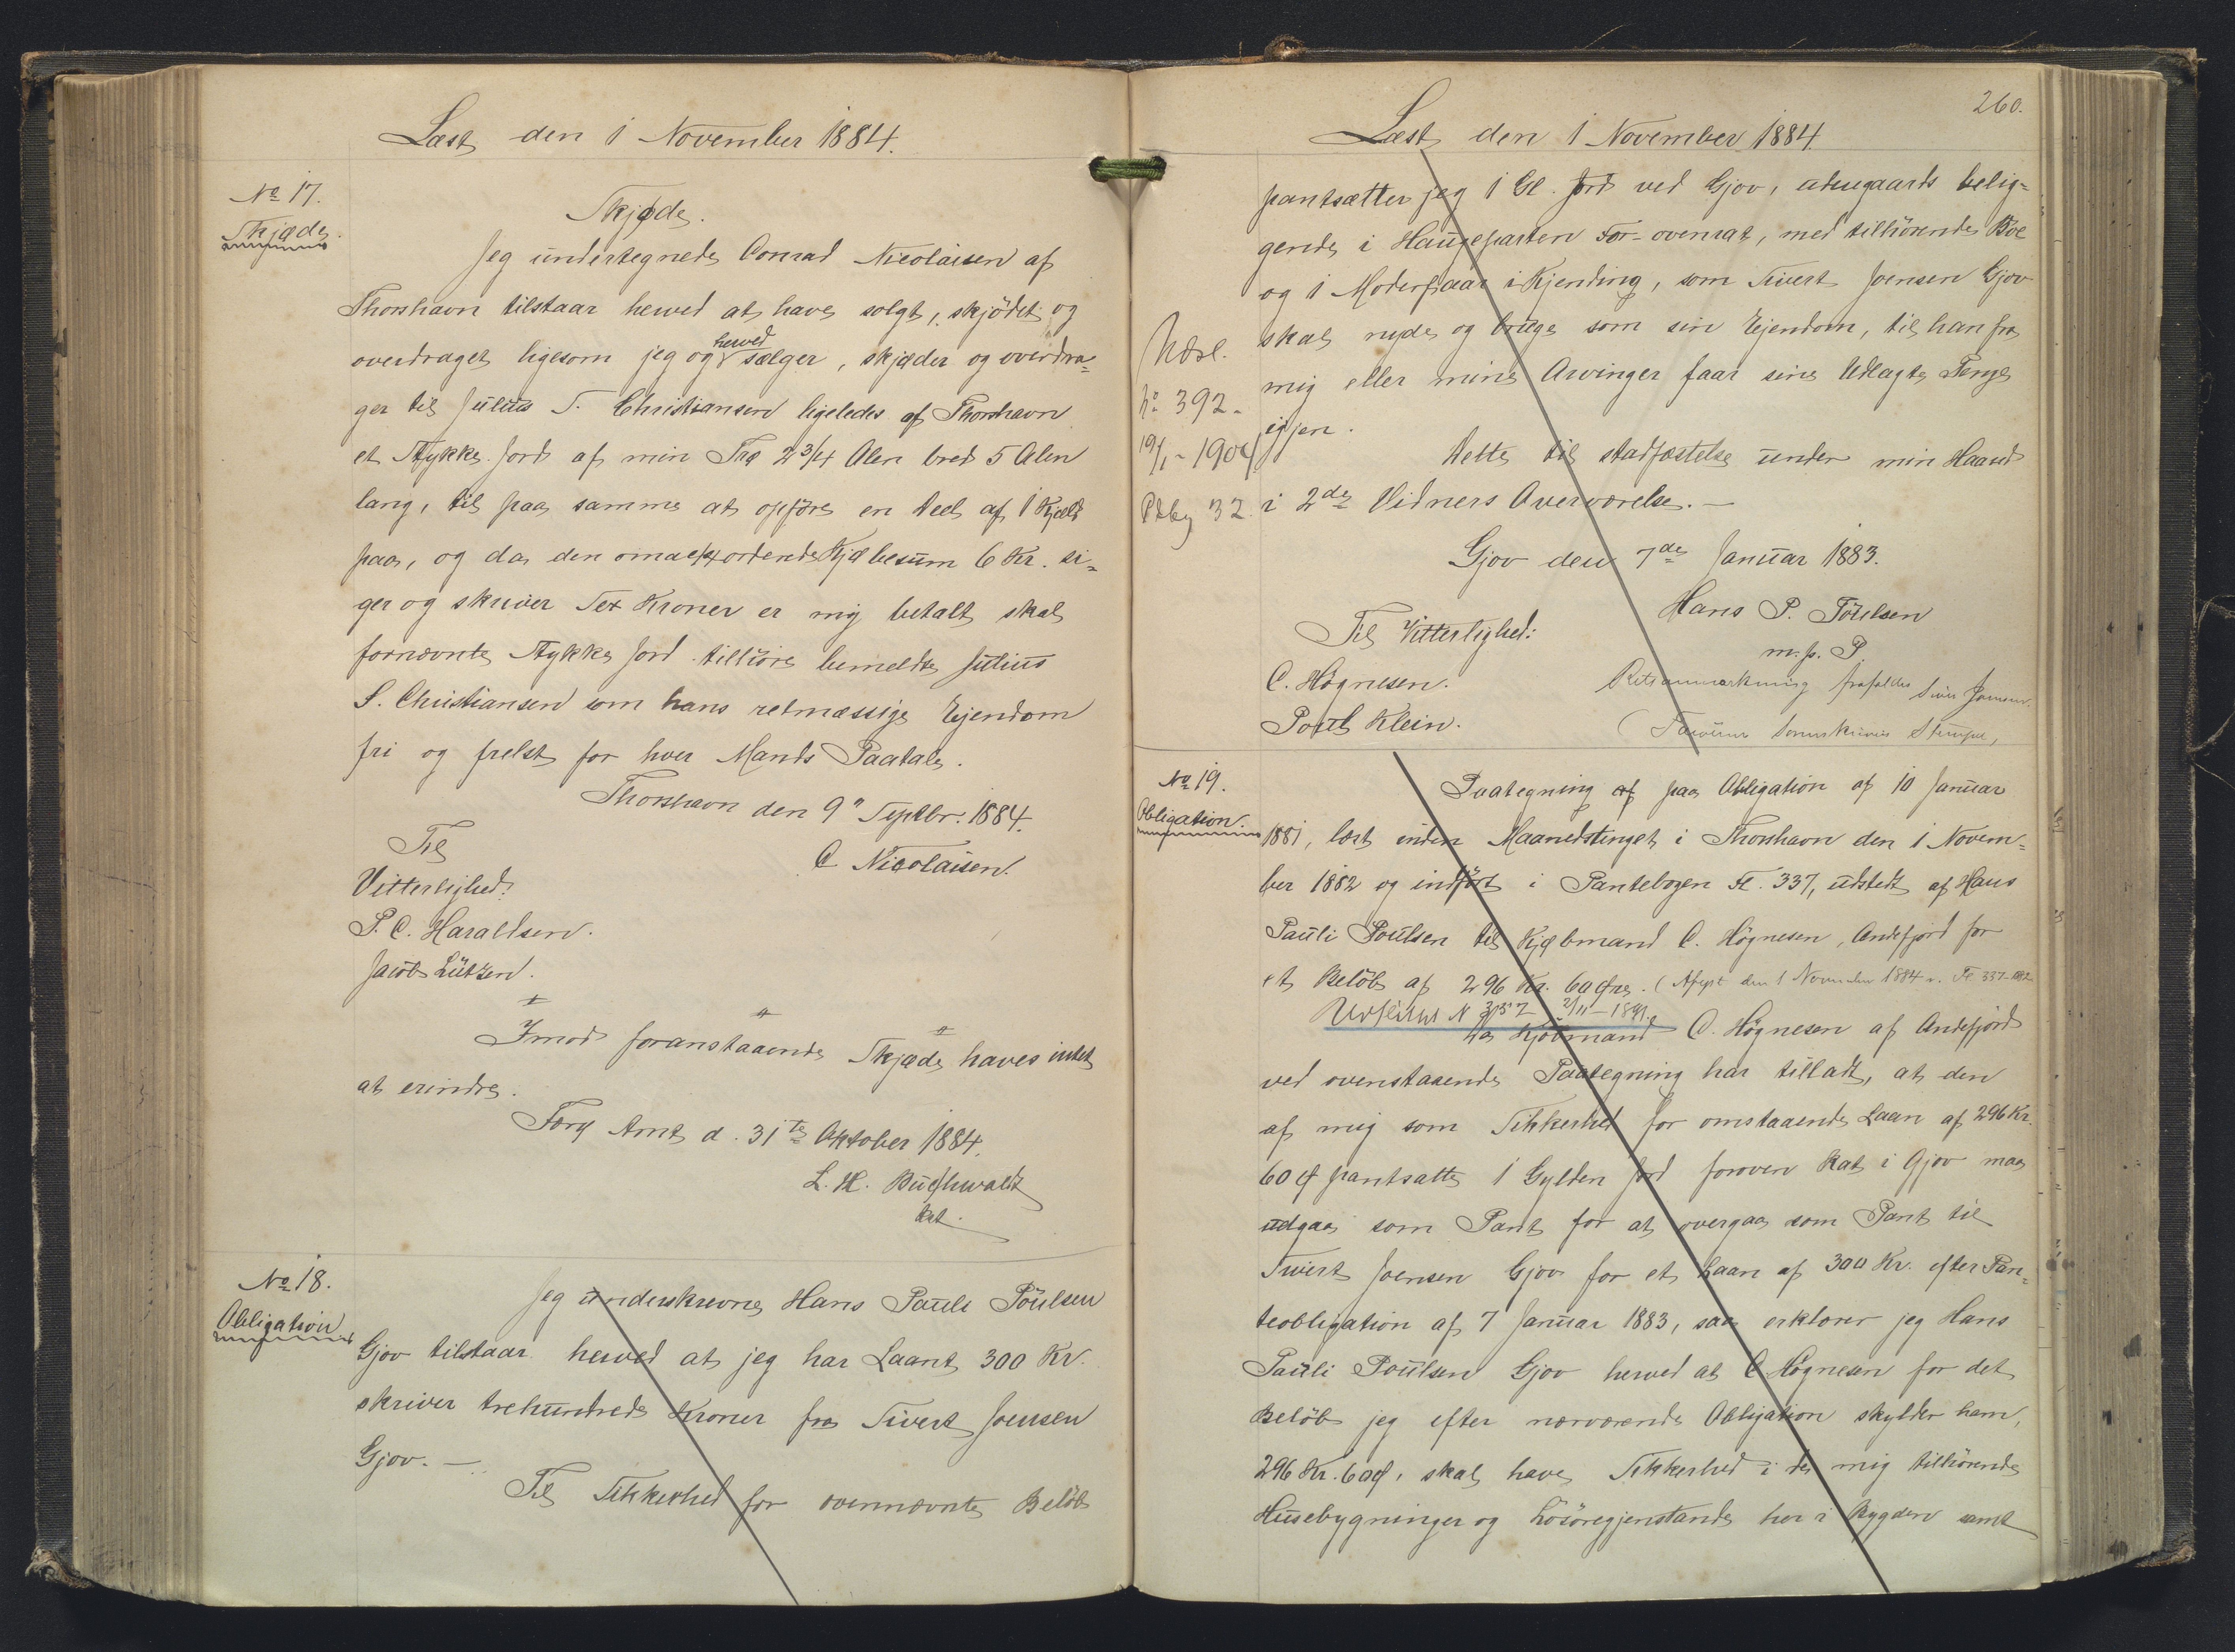 Læst den 1 November 1884.
No 17.
Skjøde.
Skjøde.
Jeg undertegnede Conrad Nicolaisen af
Thorshavn tilstaar herved at have solgt, skjödet og
overdraget ligesom jeg og herved sælger, skjøder og overdra=
ger til Julius S. Christiansen ligeledes af Thorshavn
et Stykke Jord af min Trø 2 3/4 Alen bred 5 Alen
lang, til paa samme at opføre en Deel af 1 Kjeld
paa, og da den Kjøbesum 6 Kr. si=
ger og skriver Sex Kroner er mig betalt skal
fornævnte Stykke Jord tilhøre bemeldte Julius
S. Christiansen som hans retmæssige Ejendom
fri og frelst for hver Mands Paatale.
Thorshavn den 9" Septbr. 1884.
C Nicolaisen.
Til
Vitterlighed:
P. C. Haraldsen.
Jacob Lützen.
Imod foranstaaende Skjøde haves intet
at erindre.
Færø Amt d. 31te Oktober 1884.
L. H. Buchwaldt
kst.
No 18.
Obligation
Jeg underskrevne Hans Pauli Poulsen
Gjov tilstaar herved at jeg har Laant 300 Kr.
skriver trehundrede Kroner fra Sivert Joensen
Gjov. —
Til Sikkerhed for ovennævnte Beløb
260.
Læst den 1 November 1884.
pantsætter jeg 1 Gl. Jord ved Gjov, udengaards belig=
gende i Haugeparten For-ovenrat, med tilhørende Bøe
og 1 Moderfaar i Kjending, som Sivert Joensen Gjov
skal nyde og bruge som sin Ejendom, til han fra
mig eller mine Arvinger faar sine Udlagte Penge
igjen.
Udsl.
No 392.
19/1-1904
Pdbg 32.
Dette til stadfæstelse under min Haand
i 2de Vidners Overværelse. —
Gjov den 7de Januar 1883.
Hans P. Poulsen
m. p. P.
Til Vitterlighed:
C. Högnesen.
Poul Klein.
Retsanmærkning frafaldes Sivert Joensen.
No 19.
Obligation.
Paategning af paa Obligation af 10 Januar
1881, læst inden Maanedstinget i Thorshavn den 1 Novem=
ber 1882 og indført i Pantebogen Fl. 337, udstedt af Hans
Pauli Poulsen til Kjøbmand C. Högnesen, Andefjord for
et Beløb af 296 Kr. 60 Øre. (Aflyst den 1 November 1884 Fl 337-1882
Udslettet N 2/11-1891.
Da Kjöbmand C. Högnesen af Andefjord
ved ovenstaaende Paategning har tilladt, at den
af mig som Sikkerhed for omstaaende Laan af 296 Kr.
60 Ø pantsatte 1 Gylden Jord foroven Rat i Gjov maa
udgaa som Pant for at overgaa som Pant til
Sivert Joensen Gjov for et Laan af 300 Kr. efter Pan=
teobligation af 7 Januar 1883, saa erklærer jeg Hans
Pauli Poulsen Gjov herved at C. Högnesen for det
Beløb jeg efter nærværende Obligation skylder ham,
296 Kr. 60 Ø, skal have Sikkerhed i de mig tilhørende
Husebygninger og Løsøregjenstande her i Bygden samt